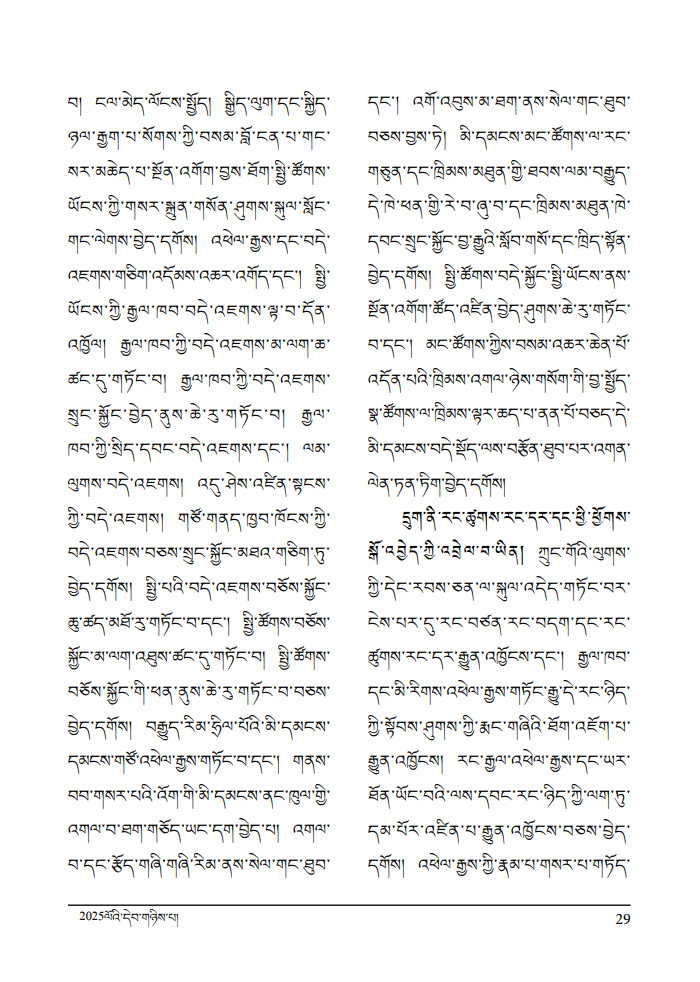 བ། ངལ་མེད་ལོངས་སྤྱོད། སྒྱིད་ལུག་དང་སྐྱིད་
ཉལ་རྒྱག་པ་སོགས་ཀྱི་བསམ་བློ་ངན་པ་གང་
སར་མཆེད་པ་སྔོན་འགོག་བྱས་ཐོག་སྤྱི་ཚོགས་
ཡོངས་ཀྱི་གསར་སྐྲུན་གསོན་ཤུགས་སྐུལ་སློང་
གང་ལེགས་བྱེད་དགོས། འཕེལ་རྒྱས་དང་བདེ་
འཇགས་གཅིག་འདོམས་འཆར་འགོད་དང་། སྤྱི་
ཡོངས་ཀྱི་རྒྱལ་ཁབ་བདེ་འཇགས་ལྟ་བ་དོན་
འཁྱོལ། རྒྱལ་ཁབ་ཀྱི་བདེ་འཇགས་མ་ལག་ཆ་
ཚང་དུ་གཏོང་བ། རྒྱལ་ཁབ་ཀྱི་བདེ་འཇགས་
སྲུང་སྐྱོང་བྱེད་ནུས་ཆེ་རུ་གཏོང་བ། རྒྱལ་
ཁབ་ཀྱི་སྲིད་དབང་བདེ་འཇགས་དང་། ལམ་
ལུགས་བདེ་འཇགས། འདུ་ཤེས་འཛིན་སྟངས་
ཀྱི་བདེ་འཇགས། གཙོ་གནད་ཁྱབ་ཁོངས་ཀྱི་
བདེ་འཇགས་བཅས་སྲུང་སྐྱོང་མཐའ་གཅིག་ཏུ་
བྱེད་དགོས། སྤྱི་པའི་བདེ་འཇགས་བཅོས་སྐྱོང་
ཆུ་ཚད་མཐོ་རུ་གཏོང་བ་དང་། སྤྱི་ཚོགས་བཅོས་
སྐྱོང་མ་ལག་འཐུས་ཚང་དུ་གཏོང་བ། སྤྱི་ཚོགས་
བཅོས་སྐྱོང་གི་ཕན་ནུས་ཆེ་རུ་གཏོང་བ་བཅས་
བྱེད་དགོས། བརྒྱུད་རིམ་ཧྲིལ་པོའི་མི་དམངས་
དམངས་གཙོ་འཕེལ་རྒྱས་གཏོང་བ་དང་། གནས་
བབ་གསར་པའི་འོག་གི་མི་དམངས་ནང་ཁུལ་གྱི་
འགལ་བ་ཐག་གཅོད་ཡང་དག་བྱེད་པ། འགལ་
བ་དང་རྩོད་གཞི་གཞི་རིམ་ནས་སེལ་གང་ཐུབ་
དང་། འགོ་འབུས་མ་ཐག་ནས་སེལ་གང་ཐུབ་
བཅས་བྱས་ཏེ། མི་དམངས་མང་ཚོགས་ལ་རང་
གཅུན་དང་ཁྲིམས་མཐུན་གྱི་ཐབས་ལམ་བརྒྱུད་
དེ་ཁེ་ཕན་གྱི་རེ་བ་ཞུ་བ་དང་ཁྲིམས་མཐུན་ཁེ་
དབང་སྲུང་སྐྱོང་བྱ་རྒྱུའི་སློབ་གསོ་དང་ཁྲིད་སྟོན་
བྱེད་དགོས། སྤྱི་ཚོགས་བདེ་སྐྱོང་སྤྱི་ཡོངས་ནས་
སྔོན་འགོག་ཚོད་འཛིན་བྱེད་ཤུགས་ཆེ་རུ་གཏོང་
བ་དང་། མང་ཚོགས་ཀྱིས་བསམ་འཆར་ཆེན་པོ་
འདོན་པའི་ཁྲིམས་འགལ་ཉེས་གསོག་གི་བྱ་སྤྱོད་
སྣ་ཚོགས་ལ་ཁྲིམས་ལྟར་ཆད་པ་ནན་པོ་བཅད་དེ་
མི་དམངས་བདེ་སྡོད་ལས་བརྩོན་ཐུབ་པར་འགན་
ལེན་ཏན་ཏིག་བྱེད་དགོས།
དྲུག་ནི་རང་ཚུགས་རང་དར་དང་ཕྱི་ཕྱོགས་
སྒོ་འབྱེད་ཀྱི་འབྲེལ་བ་ཡིན། ཀྲུང་གོའི་ལུགས་
ཀྱི་དེང་རབས་ཅན་ལ་སྐུལ་འདེད་གཏོང་བར་
ངེས་པར་དུ་རང་བཙན་རང་བདག་དང་རང་
ཚུགས་རང་དར་རྒྱུན་འཁྱོངས་དང་། རྒྱལ་ཁབ་
དང་མི་རིགས་འཕེལ་རྒྱས་གཏོང་རྒྱུ་དེ་རང་ཉིད་
ཀྱི་སྟོབས་ཤུགས་ཀྱི་རྨང་གཞིའི་ཐོག་འཇོག་པ་
རྒྱུན་འཁྱོངས། རང་རྒྱལ་འཕེལ་རྒྱས་དང་ཡར་
ཐོན་ཡོང་བའི་ལས་དབང་རང་ཉིད་ཀྱི་ལག་ཏུ་
དམ་པོར་འཛིན་པ་རྒྱུན་འཁྱོངས་བཅས་བྱེད་
དགོས། འཕེལ་རྒྱས་ཀྱི་རྣམ་པ་གསར་པ་གཏོད་
2025ལོའི་དེབ་གཉིས་པ།
29